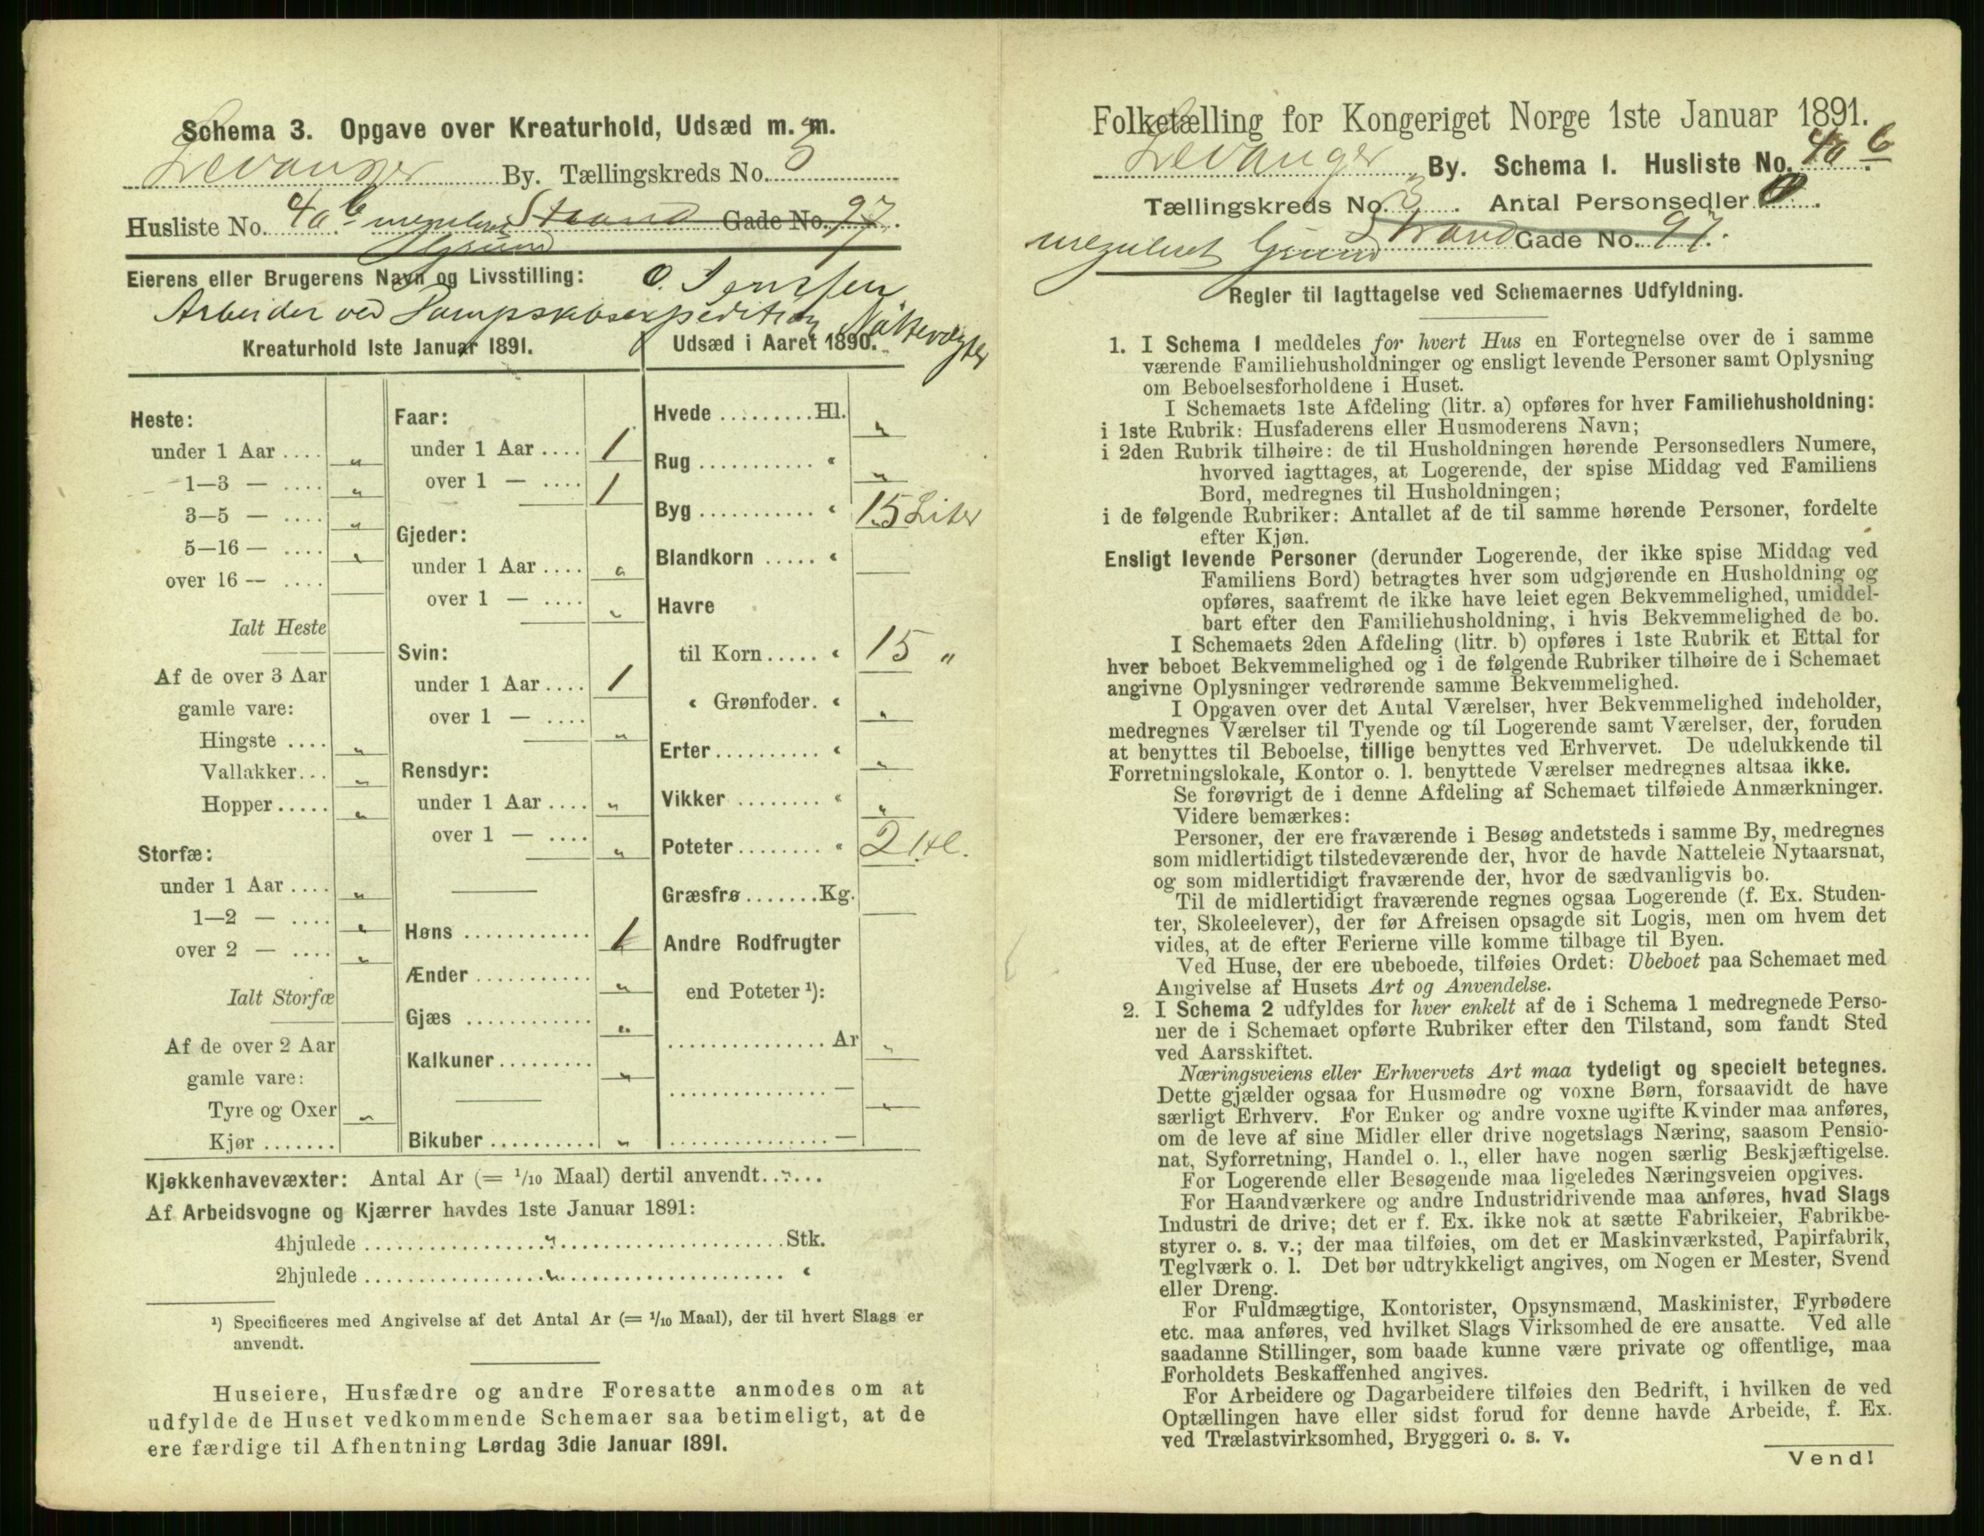 Schema 3. Opgave over Kreaturhold, Udsæd m. m.
Levanger By. Tællingskreds No. 3
Husliste No. 40 b ureguleret Strand Gade No. 97.
Grund
Eierens eller Brugerens Navn og Livsstilling: O. Jenssen
Arbeider ved Dampskibsexpedition Nattevægter
Kreaturhold 1ste Januar 1891.
Heste:
under 1 Aar .... „
1—3 — .... „
3—5 — .... „
5—16 — .... „
over 16 — ....
Ialt Heste
Af de over 3 Aar
gamle vare:
Hingste .... „
Vallakker... „
Hopper ..... „
Storfæ:
under 1 Aar .... „
1—2 — .... „
over 2 — .... „
Ialt Storfæ
Af de over 2 Aar
gamle vare:
Tyre og Oxer „
Kjør .......
Faar:
under 1 Aar .... 1
over 1 — .... 1
Gjeder:
under 1 Aar .... „
over 1 — .... „
Svin:
under 1 Aar .... 1
over 1 — .... „
Rensdyr:
under 1 Aar .... „
over 1 — .... „
Høns ............ 1
Ænder ........... „
Gjæs ............ „
Kalkuner ......... „
Bikuber .......... „
Udsæd i Aaret 1890.
Hvede .........Hl. „
Rug ........... “ „
Byg ........... “ 15 Liter
Blandkorn ..... “
Havre
til Korn ..... “ 15 „
“ Grønfoder. “ „
Erter .......... “ „
Vikker ........ “ „
Poteter ........ “ 2 Hl.
Græsfrø .......Kg.
Andre Rodfrugter
end Poteter ¹):
............... Ar „
............... — „
............... —
Kjøkkenhavevæxter: Antal Ar (= 1/10 Maal) dertil anvendt. „
Af Arbeidsvogne og Kjærrer havdes 1ste Januar 1891:
4hjulede ........ „ ........ Stk.
2hjulede ........ „ ........ “
¹) Specificeres med Angivelse af det Antal Ar (= 1/10 Maal), der til hvert Slags er
anvendt.
Huseiere, Husfædre og andre Foresatte anmodes om at
udfylde de Huset vedkommende Schemaer saa betimeligt, at de
ere færdige til Afhentning Lørdag 3die Januar 1891.
Folketælling for Kongeriget Norge 1ste Januar 1891.
Levanger By. Schema I. Husliste No. 40 b
Tællingskreds No. 3. Antal Personsedler 0.
ureguleret Grund Strand Gade No. 97.
Regler til Iagttagelse ved Schemaernes Udfyldning.
1. I Schema 1 meddeles for hvert Hus en Fortegnelse over de i samme
værende Familiehusholdninger og ensligt levende Personer samt Oplysning
om Beboelsesforholdene i Huset.
I Schemaets 1ste Afdeling (litr. a) opføres for hver Familiehusholdning:
i 1ste Rubrik: Husfaderens eller Husmoderens Navn;
i 2den Rubrik tilhøire: de til Husholdningen hørende Personsedlers Numere,
hvorved iagttages, at Logerende, der spise Middag ved Familiens
Bord, medregnes til Husholdningen;
i de følgende Rubriker: Antallet af de til samme hørende Personer, fordelte
efter Kjøn.
Ensligt levende Personer (derunder Logerende, der ikke spise Middag ved
Familiens Bord) betragtes hver som udgjørende en Husholdning og
opføres, saafremt de ikke have leiet egen Bekvemmelighed, umiddel-
bart efter den Familiehusholdning, i hvis Bekvemmelighed de bo.
I Schemaets 2den Afdeling (litr. b) opføres i 1ste Rubrik et Ettal for
hver beboet Bekvemmelighed og i de følgende Rubriker tilhøire de i Schemaet
angivne Oplysninger vedrørende samme Bekvemmelighed.
I Opgaven over det Antal Værelser, hver Bekvemmelighed indeholder,
medregnes Værelser til Tyende og til Logerende samt Værelser, der, foruden
at benyttes til Beboelse, tillige benyttes ved Erhvervet. De udelukkende til
Forretningslokale, Kontor o. l. benyttede Værelser medregnes altsaa ikke.
Se forøvrigt de i denne Afdeling af Schemaet tilføiede Anmærkninger.
Videre bemærkes:
Personer, der ere fraværende i Besøg andetsteds i samme By, medregnes
som midlertidigt tilstedeværende der, hvor de havde Natteleie Nytaarsnat,
og som midlertidigt fraværende der, hvor de sædvanligvis bo.
Til de midlertidigt fraværende regnes ogsaa Logerende (f. Ex. Studen-
ter, Skoleelever), der før Afreisen opsagde sit Logis, men om hvem det
vides, at de efter Ferierne ville komme tilbage til Byen.
Ved Huse, der ere ubeboede, tilføies Ordet: Ubeboet paa Schemaet med
Angivelse af Husets Art og Anvendelse.
2. I Schema 2 udfyldes for hver enkelt af de i Schema 1 medregnede Perso-
ner de i Schemaet opførte Rubriker efter den Tilstand, som fandt Sted
ved Aarsskiftet.
Næringsveiens eller Erhvervets Art maa tydeligt og specielt betegnes.
Dette gjælder ogsaa for Husmødre og voxne Børn, forsaavidt de have
særligt Erhverv. For Enker og andre voxne ugifte Kvinder maa anføres,
om de leve af sine Midler eller drive nogetslags Næring, saasom Pensio-
nat, Syforretning, Handel o. l., eller have nogen særlig Beskjæftigelse.
For Logerende eller Besøgende maa ligeledes Næringsveien opgives.
For Haandværkere og andre Industridrivende maa anføres, hvad Slags
Industri de drive; det er f. Ex. ikke nok at sætte Fabrikeier, Fabrikbe-
styrer o. s. v.; der maa tilføies, om det er Maskinværksted, Papirfabrik,
Teglværk o. l. Det bør udtrykkeligt angives, om Nogen er Mester, Svend
eller Dreng.
For Fuldmægtige, Kontorister, Opsynsmænd, Maskinister, Fyrbødere
etc. maa anføres, ved hvilket Slags Virksomhed de ere ansatte. Ved alle
saadanne Stillinger, som baade kunne være private og offentlige, maa
Forholdets Beskaffenhed angives.
For Arbeidere og Dagarbeidere tilføies den Bedrift, i hvilken de ved
Optællingen have eller sidst forud for denne havde Arbeide, f. Ex.
ved Trælastvirksomhed, Bryggeri o. s. v.
Vend!